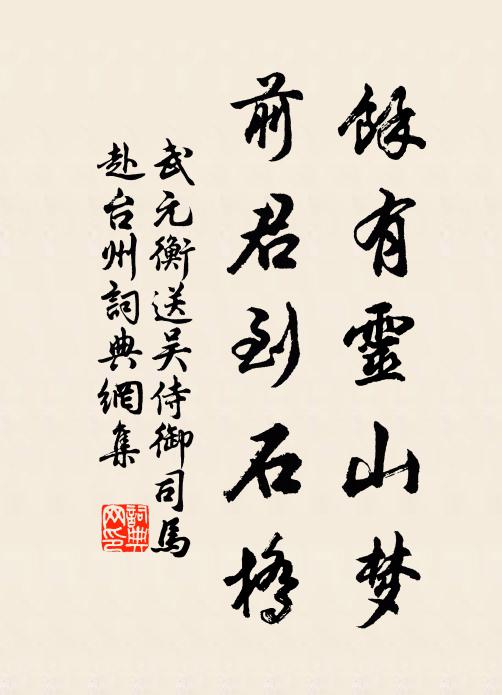 餘有靈山梦
前君到石橋
武元衡送吴侍御司馬
赴台州詞典網集
詞典
网印